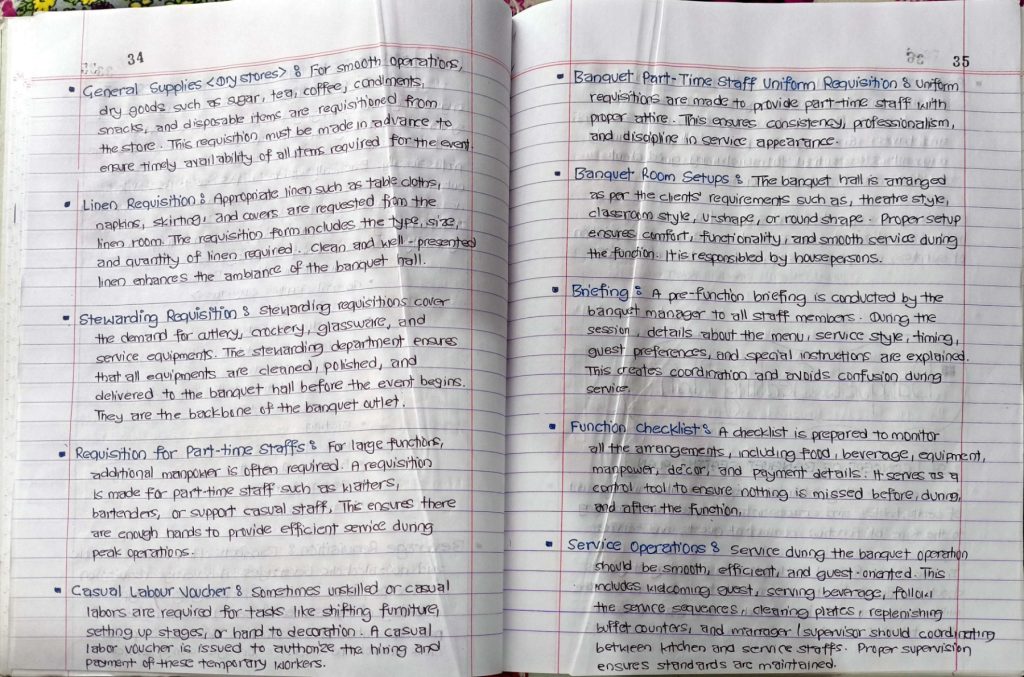 34
• General Supplies <Dry stores> : For smooth operations,
dry goods such as sugar, tea, coffee, condiments,
snacks, and disposable items are requisitioned from
the store. This requisition must be made in advance to
ensure timely availability of all items required for the event.
• Linen Requisition : Appropriate linen such as table cloths,
napkins, skirting, and covers are requested from the
linen room. The requisition form includes the type, size,
and quantity of linen required. Clean and well-presented
linen enhances the ambiance of the banquet hall.
• Stewarding Requisition : stewarding requisitions cover
the demand for cutlery, crockery, glassware, and
service equipments. The stewarding department ensures
that all equipments are cleaned, polished, and
delivered to the banquet hall before the event begins.
They are the backbone of the banquet outlet.
• Requisition for Part-time Staffs : For large functions,
additional manpower is often required. A requisition
is made for part-time staff such as waiters,
bartenders, or support casual staff. This ensures there
are enough hands to provide efficient service during
peak operations.
• Casual Labour Voucher : Sometimes unskilled or casual
labors are required for tasks like shifting furniture,
setting up stages, or hand to decoration. A casual
labor voucher is issued to authorize the hiring and
payment of these temporary workers.
35
• Banquet Part-Time Staff Uniform Requisition : Uniform
requisitions are made to provide part-time staff with
proper attire. This ensures consistency, professionalism,
and discipline in service appearance.
• Banquet Room Setups : The banquet hall is arranged
as per the clients' requirements such as, theatre style,
classroom style, U-shape, or round shape. Proper setup
ensures comfort, functionality, and smooth service during
the function. It is responsibled by housepersons.
• Briefing : A pre-function briefing is conducted by the
banquet manager to all staff members. During the
session, details about the menu, service style, timing,
guest preferences, and special instructions are explained.
This creates coordination and avoids confusion during
service.
• Function Checklist : A checklist is prepared to monitor
all the arrangements, including food, beverage, equipment,
manpower, decor, and payment details. It serves as a
control tool to ensure nothing is missed before, during,
and after the function.
• Service Operations : Service during the banquet operation
should be smooth, efficient, and guest-oriented. This
includes welcoming guest, serving beverage, follow
the service sequences, clearing plates, replenishing
buffet counters, and manager/supervisor should coordinating
between kitchen and service staffs. Proper supervision
ensures standards are maintained.